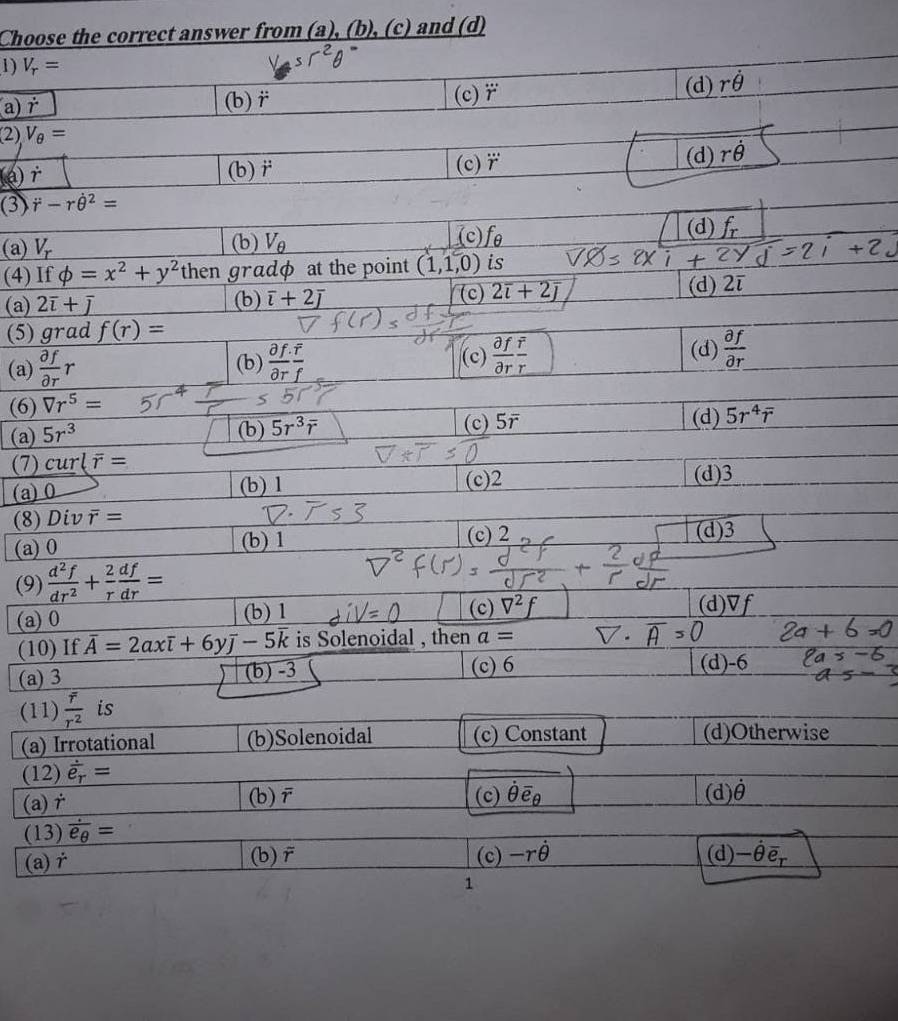 Choose the correct answer from (a), (b), (c) and (d)
1) Vᵣ =
a) ṙ (b) r̈ (c) r⃛ (d) rθ̇
(2) V_θ =
(a) ṙ (b) r̈ (c) r⃛ (d) rθ̇
(3) r̈ − rθ̇² =
(a) Vᵣ (b) V_θ (c) f_θ (d) fᵣ
(4) If ϕ = x² + y²then gradϕ at the point (1,1,0) is ∇Ø = 2x i + 2y j = 2i + 2j
(a) 2ī + j̄ (b) ī + 2j̄ (c) 2ī + 2j̄ (d) 2ī
(5) grad f(r) = ∇ f(r) =
(a) ∂f/∂r r (b) ∂f.r̄/∂r f (c) ∂f/∂r r̄/r (d) ∂f/∂r
(6) ∇r⁵ = 5r⁴ r̄/r =
(a) 5r³ (b) 5r³r̄ (c) 5r̄ (d) 5r⁴r̄
(7) curl r̄ =
(a) 0 (b) 1 (c)2 (d)3
(8) Div r̄ = ∇. r̄ = 3
(a) 0 (b) 1 (c) 2 (d)3
(9) d²f/dr² + 2/r df/dr = ∇² f(r) = d²f/dr² + 2/r df/dr
(a) 0 (b) 1 (c) ∇²f (d)∇f
div = 0
(10) If Ā = 2axī + 6yj̄ − 5k̄ is Solenoidal , then a = ∇. Ā = 0 2a + 6 = 0
(a) 3 (b) -3 (c) 6 (d)-6 2a = -6
(11) r̄/r² is
(a) Irrotational (b)Solenoidal (c) Constant (d)Otherwise
(12) ē̇ᵣ =
(a) ṙ (b) r̄ (c) θ̇ē_θ (d)θ̇
(13) ē̇_θ =
(a) ṙ (b) r̄ (c) −rθ̇ (d)−θ̇ēᵣ
1